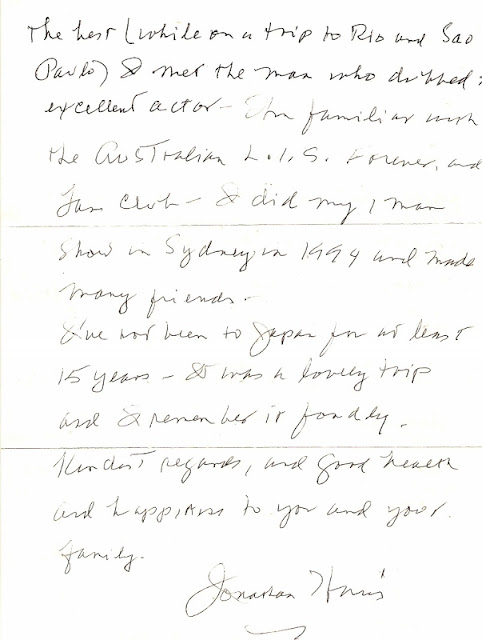 The best (while on a trip to Rio and Sao
Paulo) I met the man who dubbed
excellent actor - I'm familiar with
the Australian L.I.S. Forever, and
Fan Club - I did my 1 man
show in Sydney in 1994 and made
many friends. -
I've not been to Japan for at least
15 years - It was a lovely trip
and I remember it fondly.
Kindest regards, and good health
and happiness to you and your
family.
Jonathan Harris